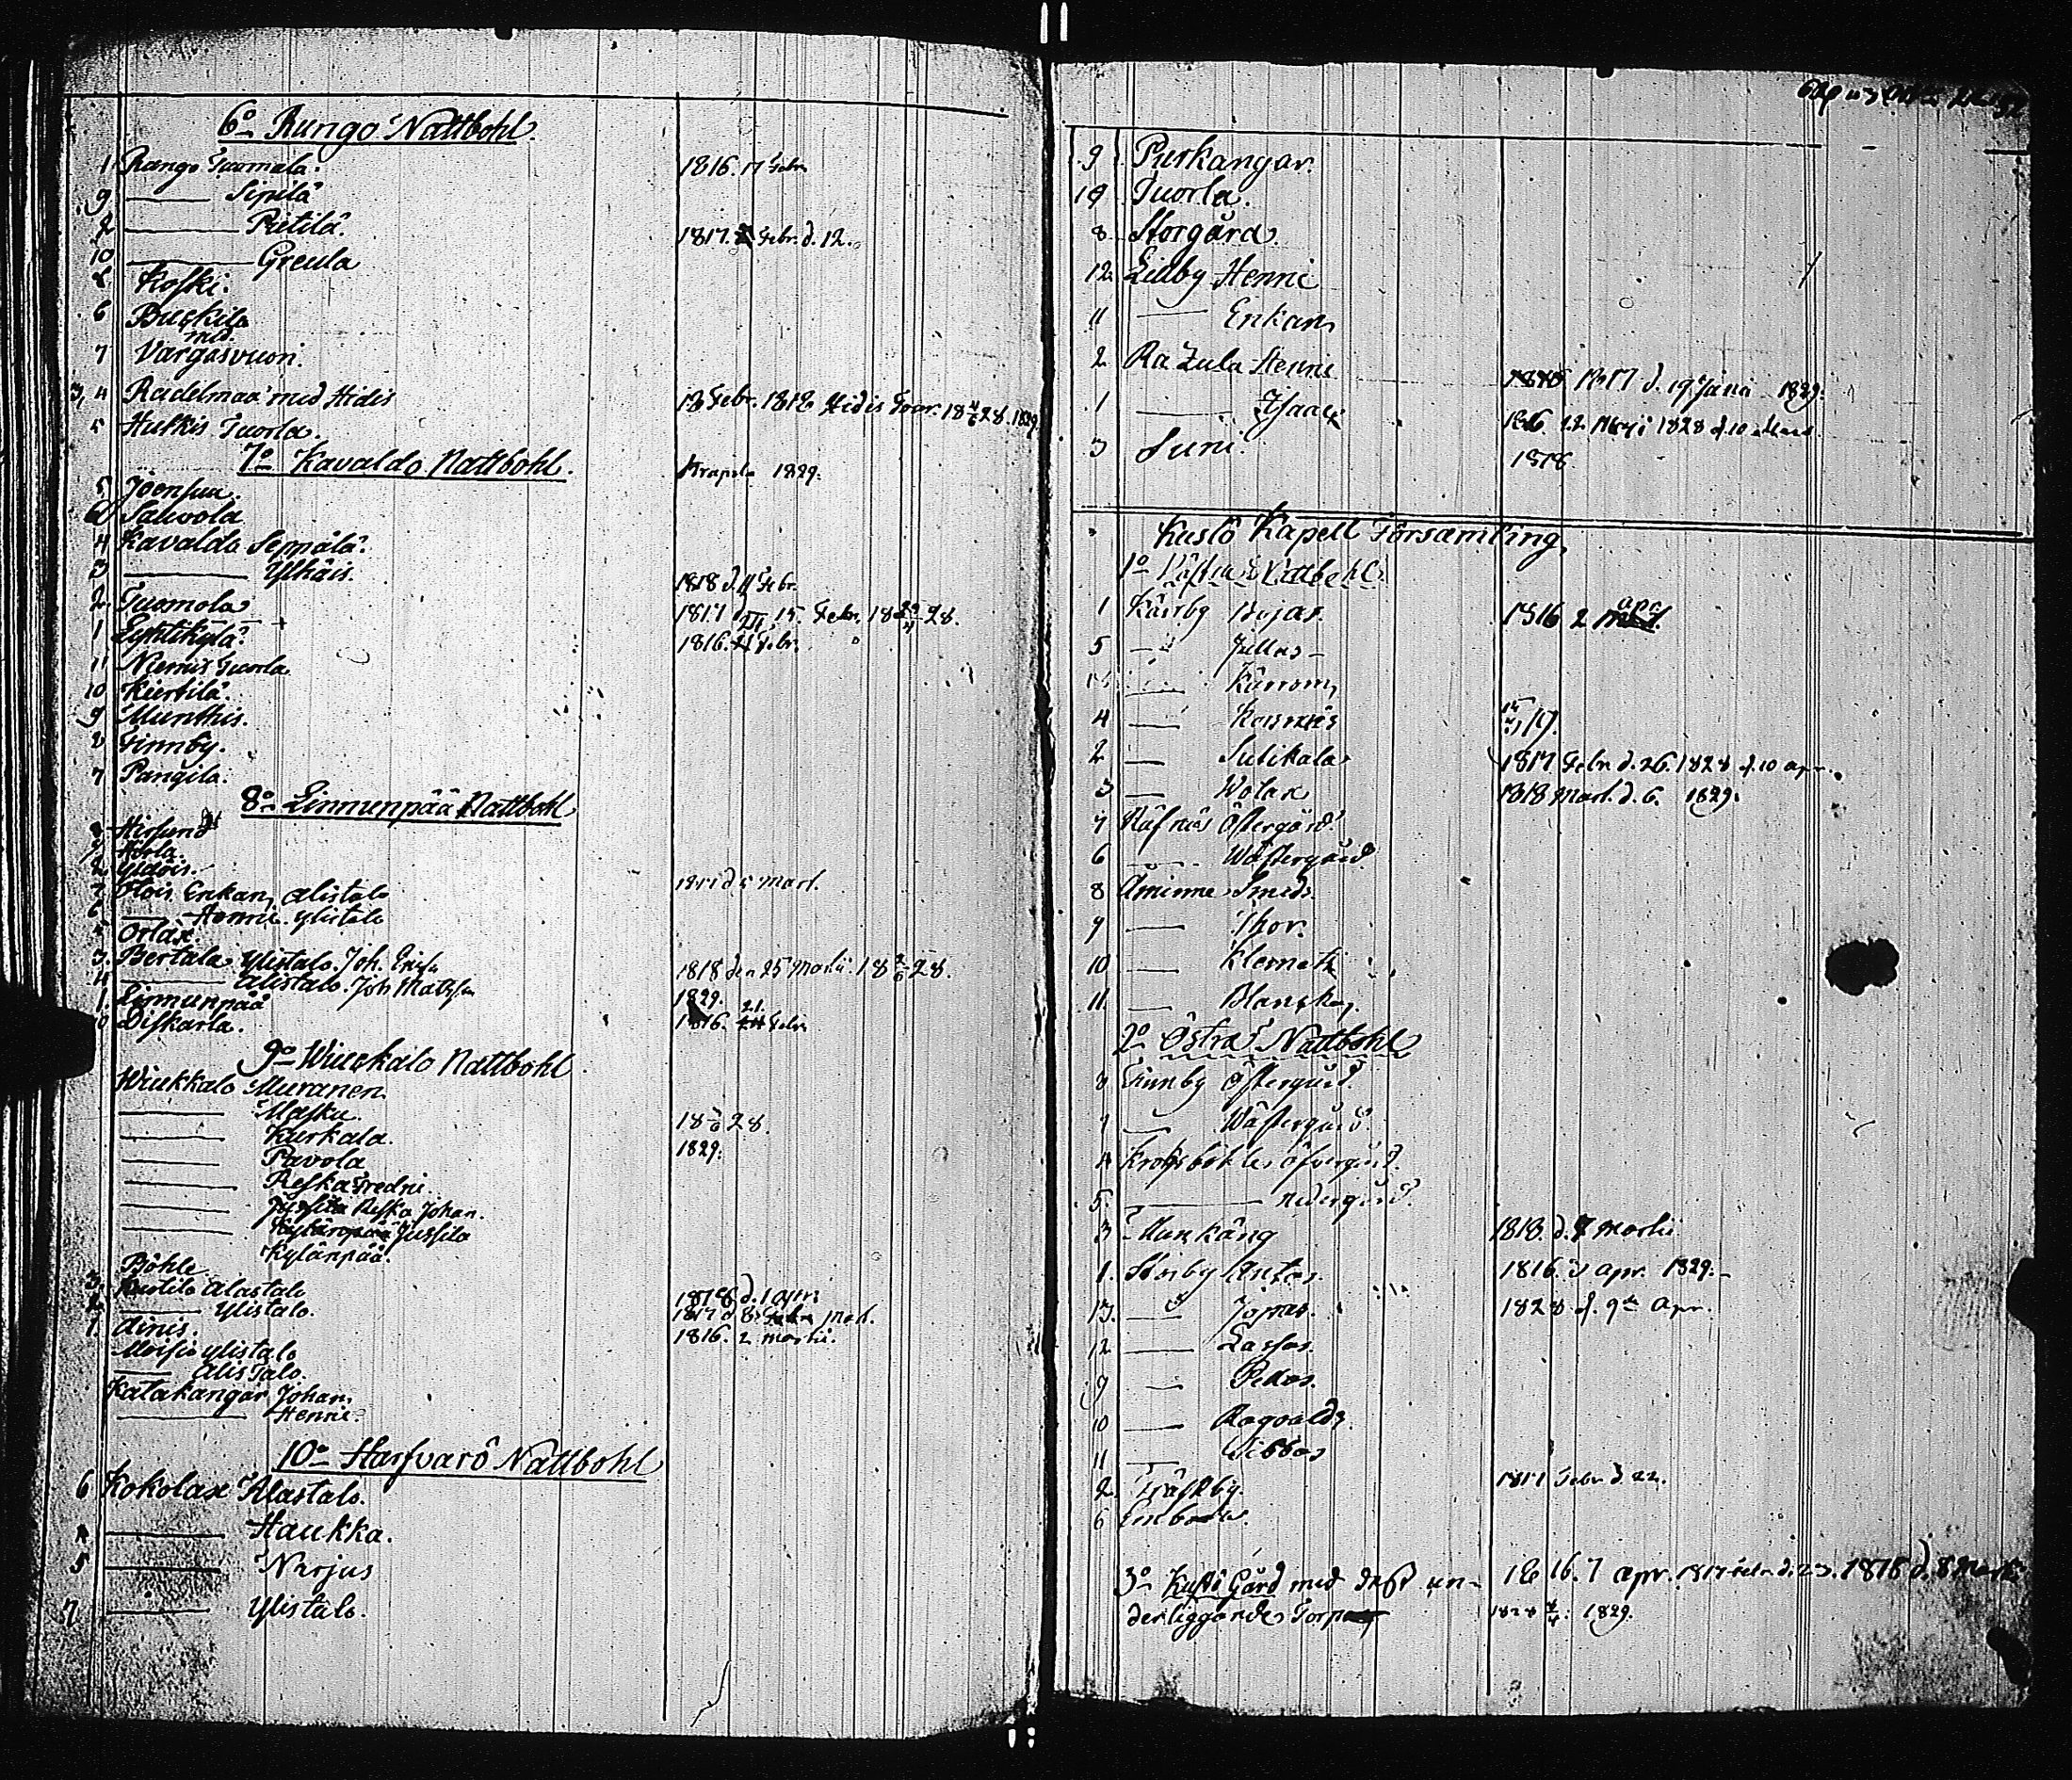 6o Rungo Nattbohl.
1 Rungo Tuomala. 1816. 17 Febr
9 —— Sipilä
2 —— Pietilä. 1817. Febr. d. 12.
10 —— Greula
8 Koski.
6 Buskila
med
7 Vargasvuori.
3, 4 Radelmaa med Hidis 18 Febr. 1818 Hidis 1829
5 Huttis Tuorla.
7o Kavaldo Nattbohl. 1829.
5 Joensuu.
6 Sauvola
4 Kavaldo Seppälä.
3 —— Yskäis. 1818 d. 11 Febr.
2. Tuomola 1817 15. Febr. 28.
1 Lyhtikylä. 1816. Febr.
11 Niemis Tuorla
10 Kurtila.
9 Munthis.
8 Finnby.
7 Pangila.
8o Linnunpää Nattbohl
Hirsund
2 Yldöis.
7 Olois Enkan, Alistalo d 5 Mart.
6 —— Henric Ylistalo
Orlax.
3. Bertala Ylistalo. Joh. 1818 den 25 Martii. 28.
4 —— Alistalo. Joh Matsson 1829.
1. Linnunpää 1816. 21. Febr
Diskarla.
9o Wiuckalo Nattbohl
Wiukkalo Muranen
—— Masku. 28.
—— Kurkala. 1829.
—— Pavola
—— Reska Fredric.
—— Reska Johan.
—— Jussila
Kylänpää.
Böhle
3. Kustilo Alastalo 1818 d. 1 Apr.
2 —— Ylistalo. 1817 d 8 Mart.
1. Ainis. 1816. 2 Martii.
Moisio Ylistalo
—— Alistalo.
Katakangar Johan,
—— Henric.
10o Harfvarö Nattbohl
6 Kokolax Alastalo.
—— Haukka.
5 —— Narjus
7 —— Ylistalo.
9 Purkangar.
10 Tuorla.
8 Storgård.
12. Lillby Henric
11 —— Enkan,
2 Ra Zula Henric 1817 d. 19 1829.
1 —— Isaac 1816. 22 1828 d. 10
3 Suni. 1818.
Kustö Kapell Försämling,
1o Västra Nattbohl
1 Kärrby Bojas. 1816 2 apr
5 —— Jullas
—— Kärrom,
4 —— Kosnäs
2 —— Sulikala 1817 Febr d. 26. 1828 d. 10 apr.
3 —— Wolax 1818 Mart. d. 6. 1829.
7 Räfnäs Östergård.
6 —— Wästergård
8 Åminne Smeds.
9 —— Thor.
10 —— Klemets
11. —— Blanska,
2o Östra Nattbohl
8 Finnby Östergård.
7 —— Wästergård
4 Krogsböhle Öfvergård.
5. —— nedergård.
3 Munkäng 1818. d. 7 Martii
1. Storby Antas. 1816. apr. 1829.
13. —— 1828 d. 9de apr.
12 —— Lassas.
9 —— Pedas.
10 —— Ragvalds
11 —— Sibbas
2. Träskby. 1817 Febr d 22.
6 Embo
3o Kustö Gård med dess un- 1816. 7 apr. 1817 Febr d. 23. 1818 d. 8 Martii
derliggande Torp 1828 1829.